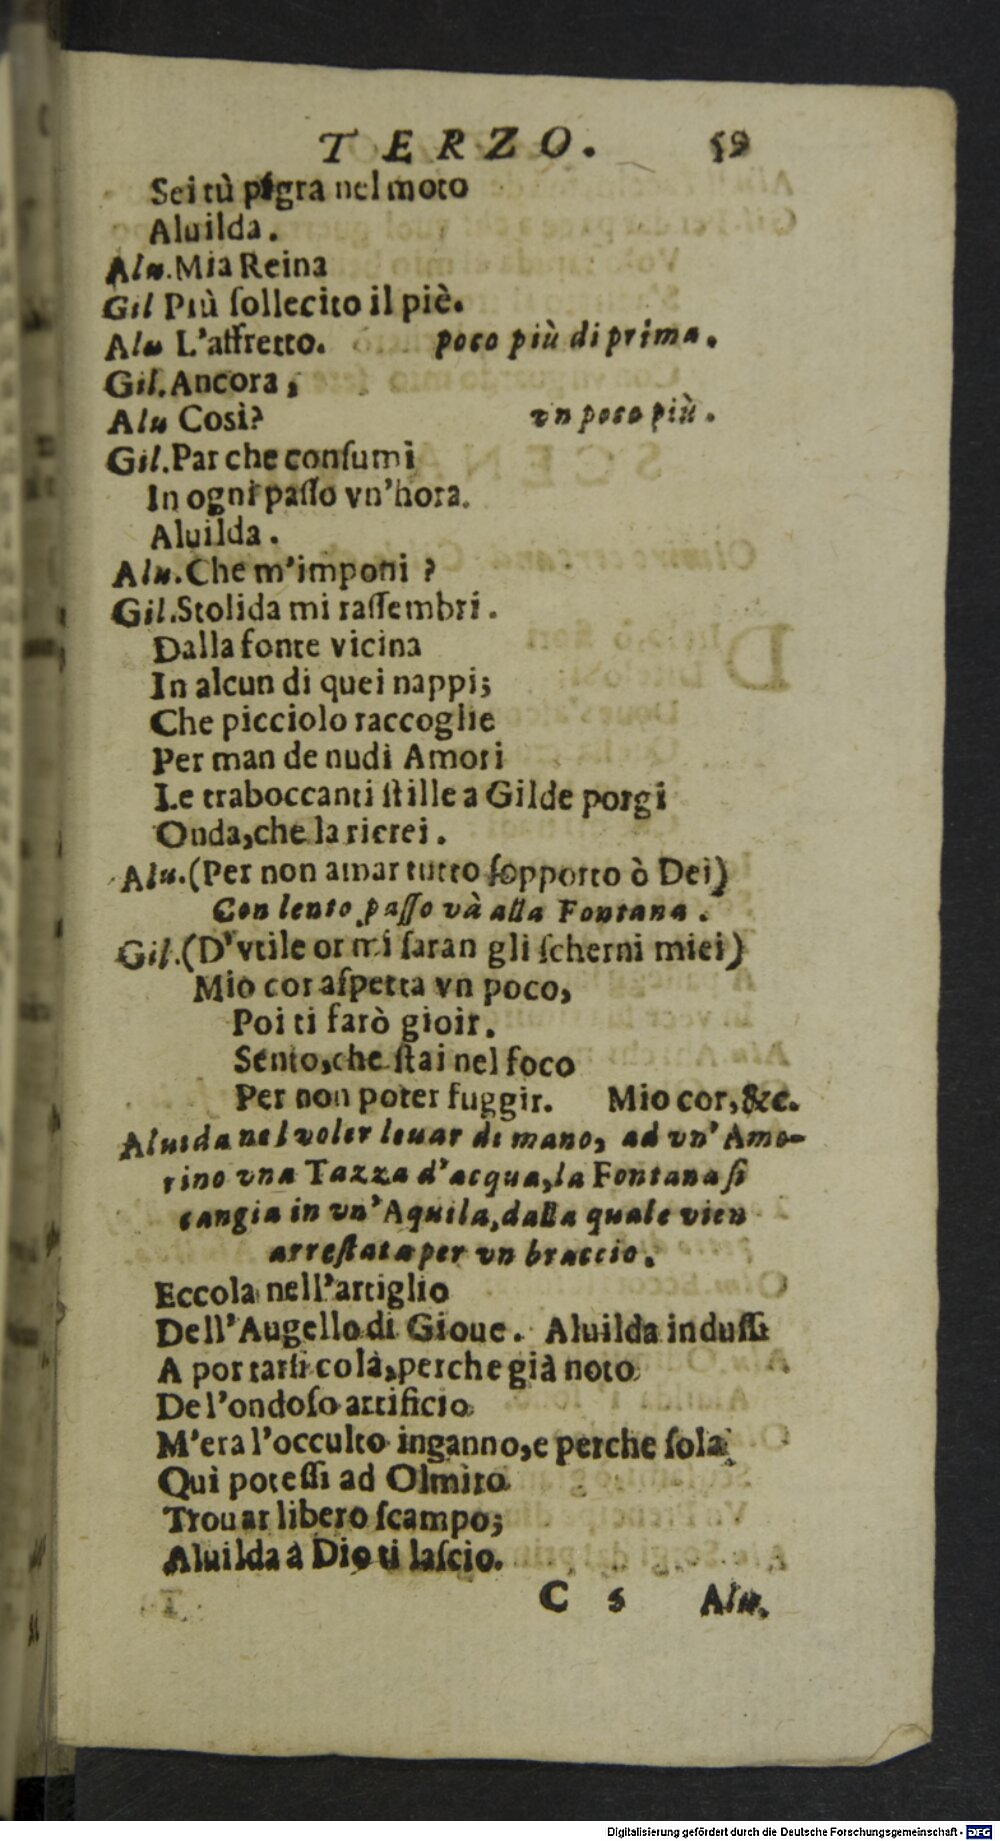 TERZO. 59
Sei tù pigra nel moto
Aluilda.
Alu. Mia Reina
Gil Più ſollecito il piè.
Alu L'affretto. poco più di prima.
Gil. Ancora,
Alu Così? vn poco più.
Gil. Par che conſumi
In ogni paſſo vn'hora.
Aluilda.
Alu. Che m'imponi ?
Gil. Stolida mi raſſembri.
Dalla fonte vicina
In alcun di quei nappi;
Che picciolo raccoglie
Per man de nudi Amori
Le traboccanti ſtille a Gilde porgi
Onda, che la ricrei.
Alu. (Per non amar tutto ſopporto ò Dei)
Con lento paſſo và alla Fontana.
Gil. (D'vtile or mi ſaran gli ſcherni miei)
Mio cor aſpetta vn poco,
Poi ti farò gioir.
Sento, che ſtai nel foco
Per non poter fuggir. Mio cor, &c.
Aluida nel voler leuar di mano, ad vn' Amo-
rino vna Tazza d'acqua, la Fontana ſi
cangia in vn' Aquila, dalla quale vien
arreſtata per vn braccio.
Eccola nell'artiglio
Dell'Augello di Gioue. Aluilda induſſi
A portarſi colà, perche già noto
De l'ondoſo artificio
M'era l'occulto inganno, e perche ſola
Quì poteſſi ad Olmiro
Trouar libero ſcampo;
Aluilda à Dio ti laſcio.
C 5 Alu.
Digitalisierung gefördert durch die Deutsche Forschungsgemeinschaft - DFG